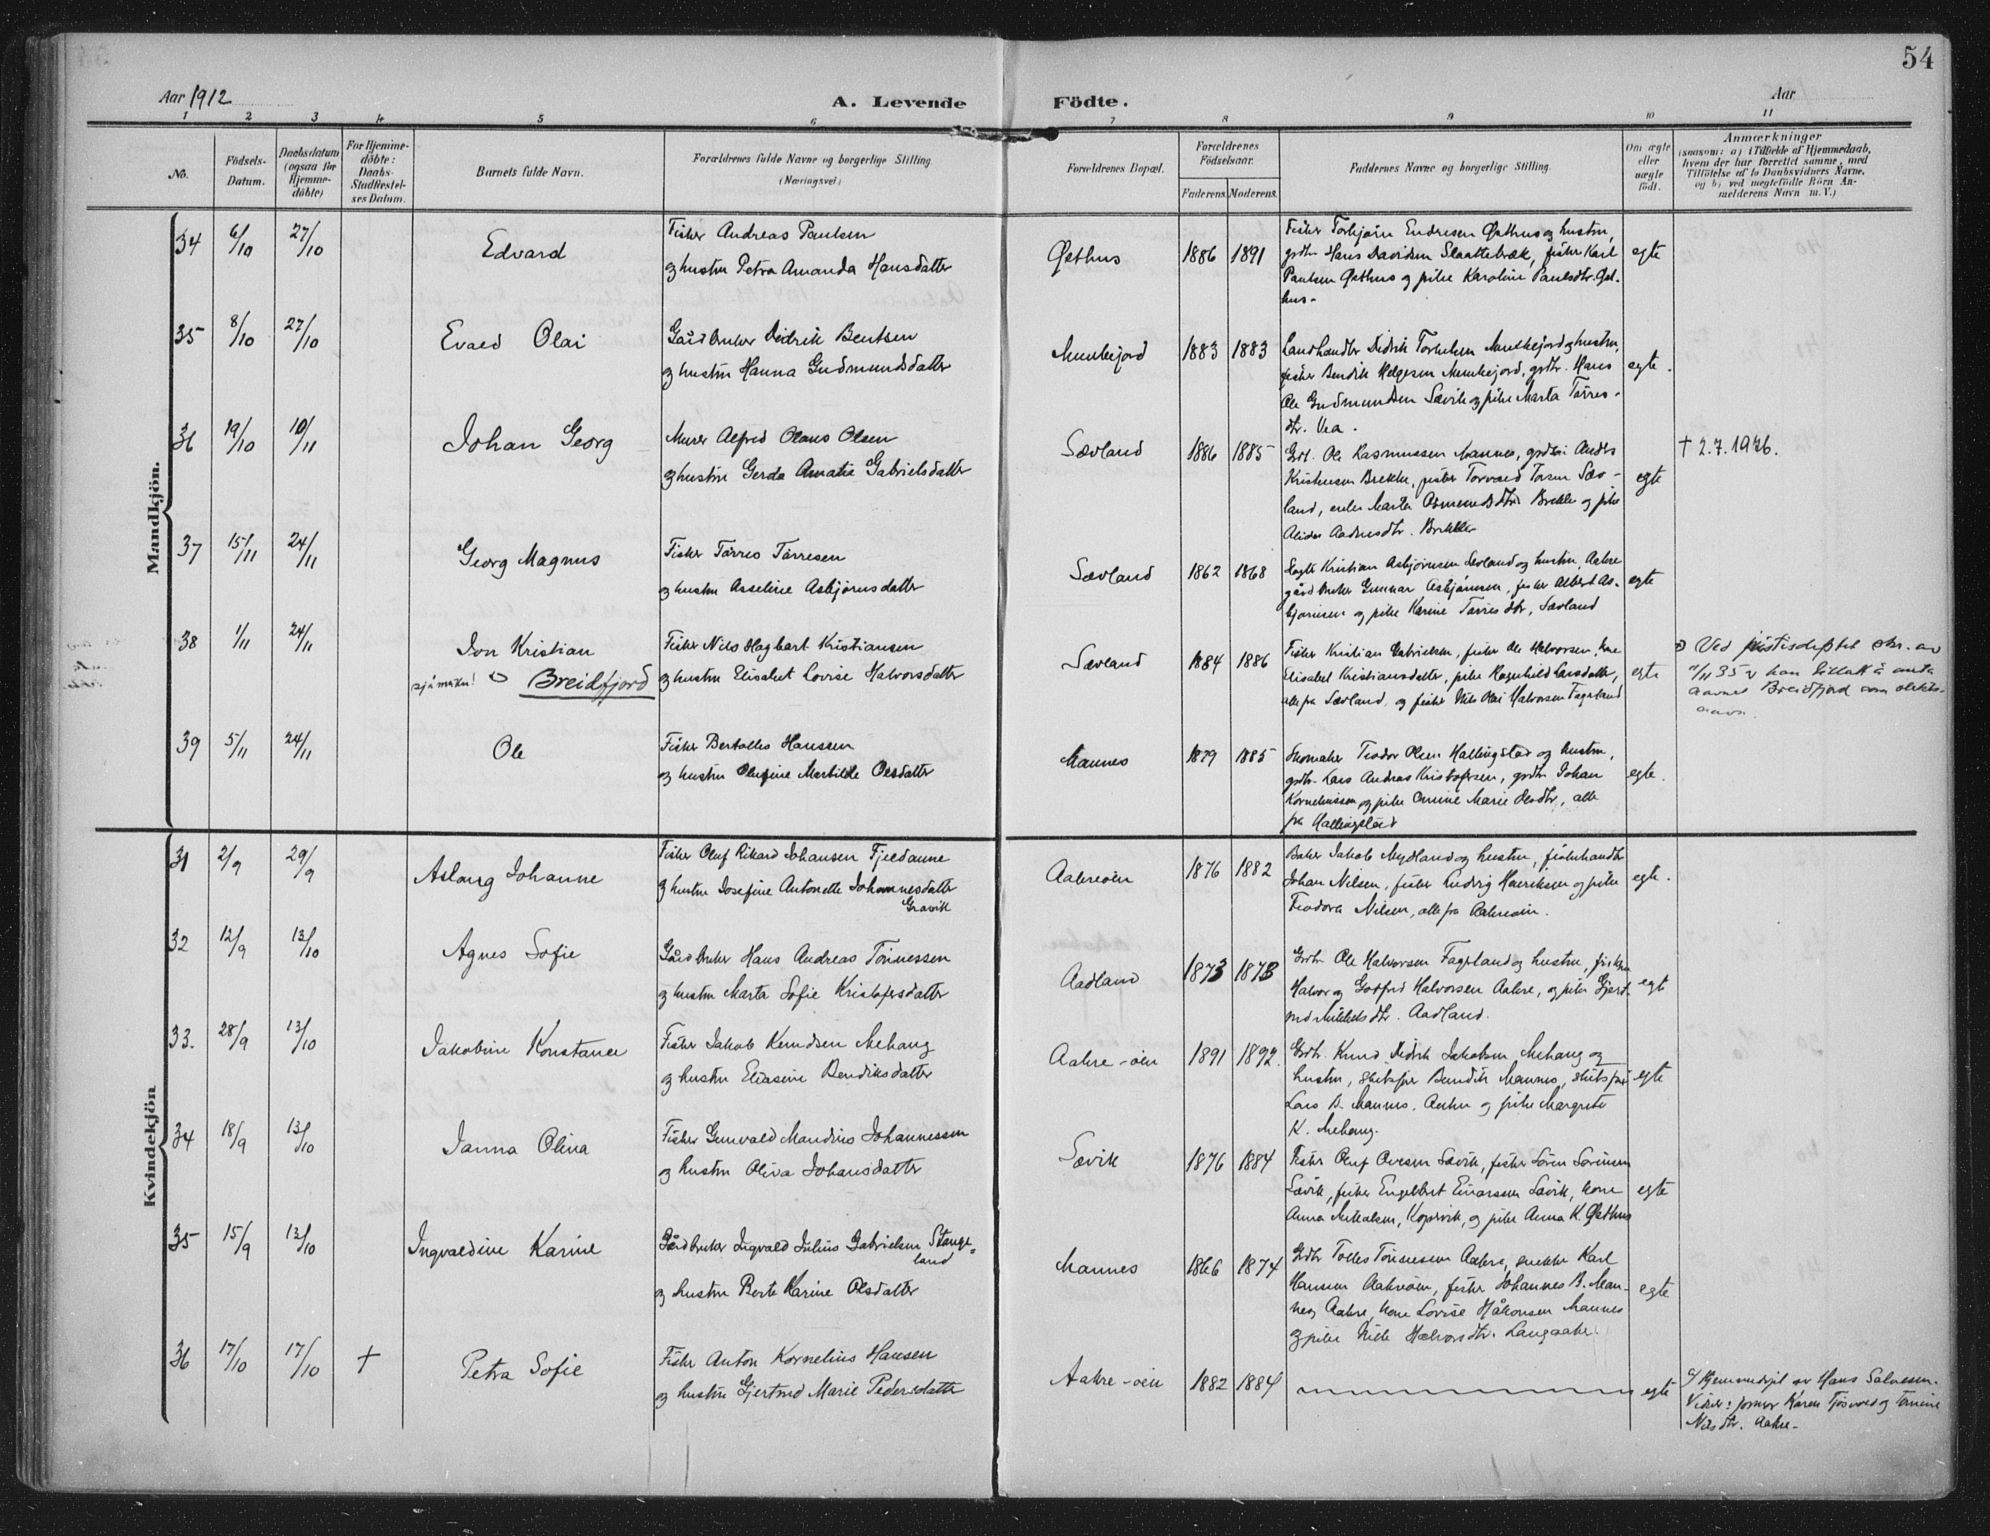 54
Aar 1912
A. Levende Födte.
Aar
1 2 3 4 5 6 7 8 9 10 11
No.
Födsels-Datum.
Daabsdatum (ogsaa for Hjemmedöbte)
For Hjemmedöbte: Daabs-Stadfæstelses Datum.
Barnets fulde Navn.
Forældrenes fulde Navne og borgerlige Stilling.
(Næringsvei)
Forældrenes Bopæl.
Forældrenes Födselsaar.
Faderens. Moderens.
Faddernes Navne og borgerlige Stilling.
Om ægte eller uægte födt.
Anmærkninger
(saasom: a) i Tilfælde af Hjemmedaab,
hvem der har forrettet samme, med
Tilföielse af to Daabsvidners Navne,
og b) ved uægtefödte Börn An-
melderens Navn m. V.)
Mandkjön.
34 6/10 27/10 Edvard
Fisker Andreas Paulsen
og hustru Petra Amanda Hansdatter
Østhus 1886 1891
Fisker Torbjørn Endresen Østhus og hustru,
grdbr Hans Davidsen Slaattebræk, fisker Karl
Paulsen Østhus og pike Karoline Paulsdtr. Øst-
hus-
egte
35 8/10 27/10 Evald Olai
Gårdbruker Didrik Bentsen
og hustru Hanna Gudmundsdatter
Munkejord 1883 1883
Landhandler Didrik Torkelsen Munkejord og hustru,
fisker Bendik Helgesen Munkejord, grdbr. Hans
Ole Gudmundsen Sævik og pike Marta Tørres-
dtr. Vea.
egte.
36 19/10 10/11 Johan Georg
Murer Alfred Olaus Olsen
og hustru Gerda Amalia Gabrielsdatter
Sævland 1886 1885
Grdb. Ole Rasmussen Mannes, grdbr. Anders
Kristensen Brekke, fisker Torvald Torsen Sæv-
land, enke Marta Osmundsdtr Brekke og pike
Alida Aadnesdtr. Brekke
egte
† 2.7.1926.
37 15/11 24/11 Georg Magnus
Fisker Tørres Tørresen
og hustru Asseline Asbjørnsdatter
Sævland 1862 1868
Kristian Asbjørnsen Sævland og hustru, Aakre
gårdbruker Gunnar Asbjørnsen, fisker Albert As-
bjørnsen og pike Karine Tørresdtr, Sævland
egte
38 1/11 24/11 Jon Kristian
Breidfjord
Fisker Nils Hagbart Kristiansen
og hustru Elisabet Lovise Halvorsdatter
Sævland 1884 1886
Fisker Kristian Gabrielsen, fisker Ole Halvorsen, kone
Elisabet Kristiansdatter, pike Ragnhild Larsdatter,
alle fra Sævland, og fisker Nils Olai Halvorsen Fageland
egte
Ved justisdeptet skr. av
/11 35 han tillatt å anta
navnet Breidfjord som slekts-
navn.
39 5/11 24/11 Ole
Fisker Bertolles Hansen
og hustru Olufine Martilde Olsdatter
Mannes 1879 1885
Skomaker Teodor Olsen Hallingstad og hustru,
grdbr. Lars Andreas Kristofersen, grdbr Johan
Korneliussen og pike Marie Olsdtr, alle
fra Hallingstad
egte.
Kvindekjön
31 2/9 29/9 Aslaug Johanne
Fisker Oluf Rikard Johansen Fjeldanne
og hustru Josefine Antonette Johannesdatter
Gravik
Aakreøen 1876 1882
Baker Jakob Mydland og hustru, fiskehandler
Johan Nilsen, fisker Ludvig Henriksen og pike
Teodora Nilsen, alle fra Aakreøen.
egte.
32 12/9 13/10 Agnes Sofie
Gårdbruker Hans Andreas Tönnessen
og hustru Marta Sofie Kristofersdatter
Aadland 1873 1873
Grdbr. Ole Halvorsen Fageland og hustru,
Halvor og Godfred Halvorsen Aakre, og pike Gjert-
rud Mikkelsdtr. Aadland.
egte
33. 28/9 13/10 Jakobine Konstance
Fisker Jakob Knudsen Mehaug
og hustru Eliasine Bendiksdatter
Aakre-øen 1891 1892.
Grdbr. Knud Didrik Jakobsen Mehaug og
hustru, skibsfører Bendik Mannes, skibsfører
Lars B. Mannes, Aakre og pike Margrete
K. Mehaug.
egte
34 18/9 13/10 Janna Olina
Fisker Gunvald Mandius Johannessen
og hustru Oliva Johansdatter
Sævik 1876 1884
Fisker Oluf Ovesen Sævik, fisker Sören Sörensen
Sævik, fisker Engelbret Einarssen Sævik, kone
Anna Mikalsen, Kopervik, og pike Anna K. Østhus
egte
35 15/9 13/10 Ingvaldine Karine
Gårdbruker Ingvald Julius Gabrielsen Stange-
land
og hustru Berte Karine Olsdatter
Mannes 1866 1874
Grdbr Tolles Tönnesen Aakre, snekker Karl
Hansen Aakreøen, fisker Johannes B. Man-
nes, Aakre, kone Lovise Håkonsen Mannes
og pike Halvorsdtr. Langaaker.
egte
36 17/10 17/10 † Petra Sofie
Fisker Anton Kornelius Hansen
og hustru Gjertrud Marie Pedersdatter
Aakre-øen 1882 1884
egte
Hjemmedøpt av Hans Salvesen.
Vidner: jomor Karen Tjøsvold og Tomine
Nilsdtr. Aakre-